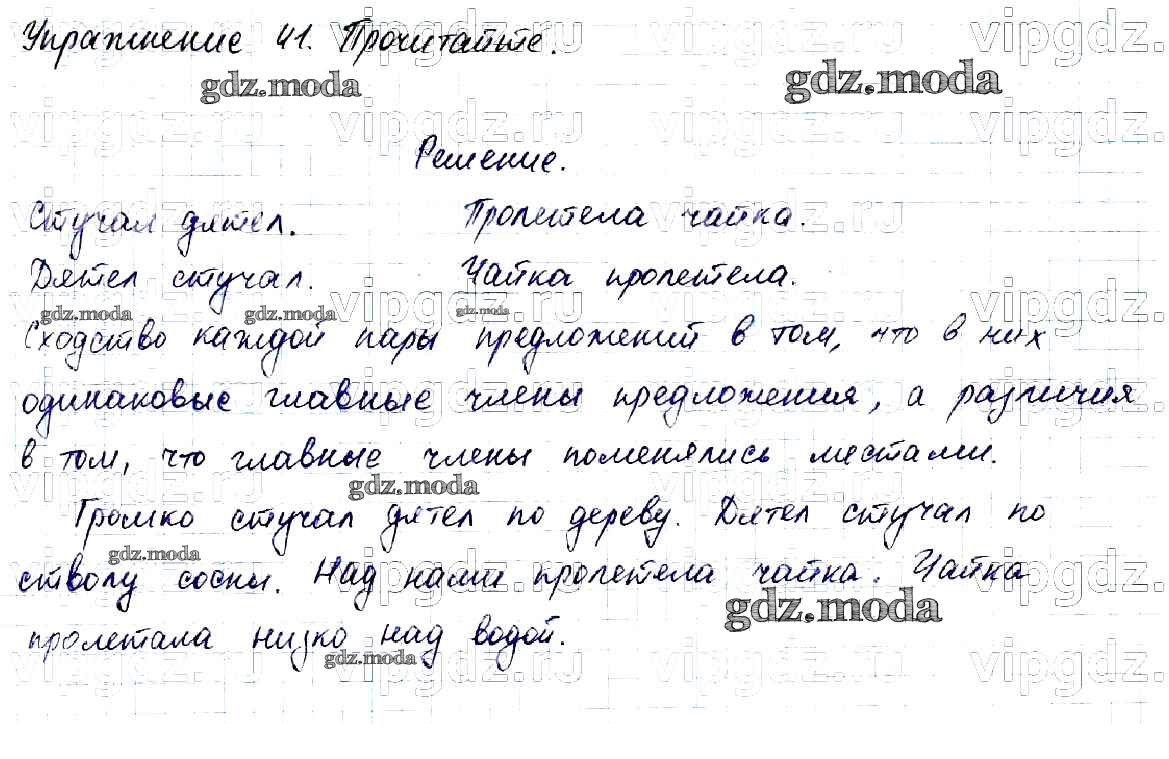 Упражнение 41. Прочитайте.
gdz.moda gdz.moda
Решение.
Стучал дятел. Пролетела чайка.
Дятел стучал. Чайка пролетела.
gdz.moda gdz.moda gdz.moda
Сходство каждой пары предложений в том, что в них
одинаковые главные члены предложения, а различия
в том, что главные члены поменялись местами.
gdz.moda
Громко стучал дятел по дереву. Дятел стучал по
gdz.moda
стволу сосны. Над нами пролетела чайка. Чайка
gdz.moda
пролетала низко над водой.
gdz.moda
vipgdz.ru vipgdz.ru vipgdz.